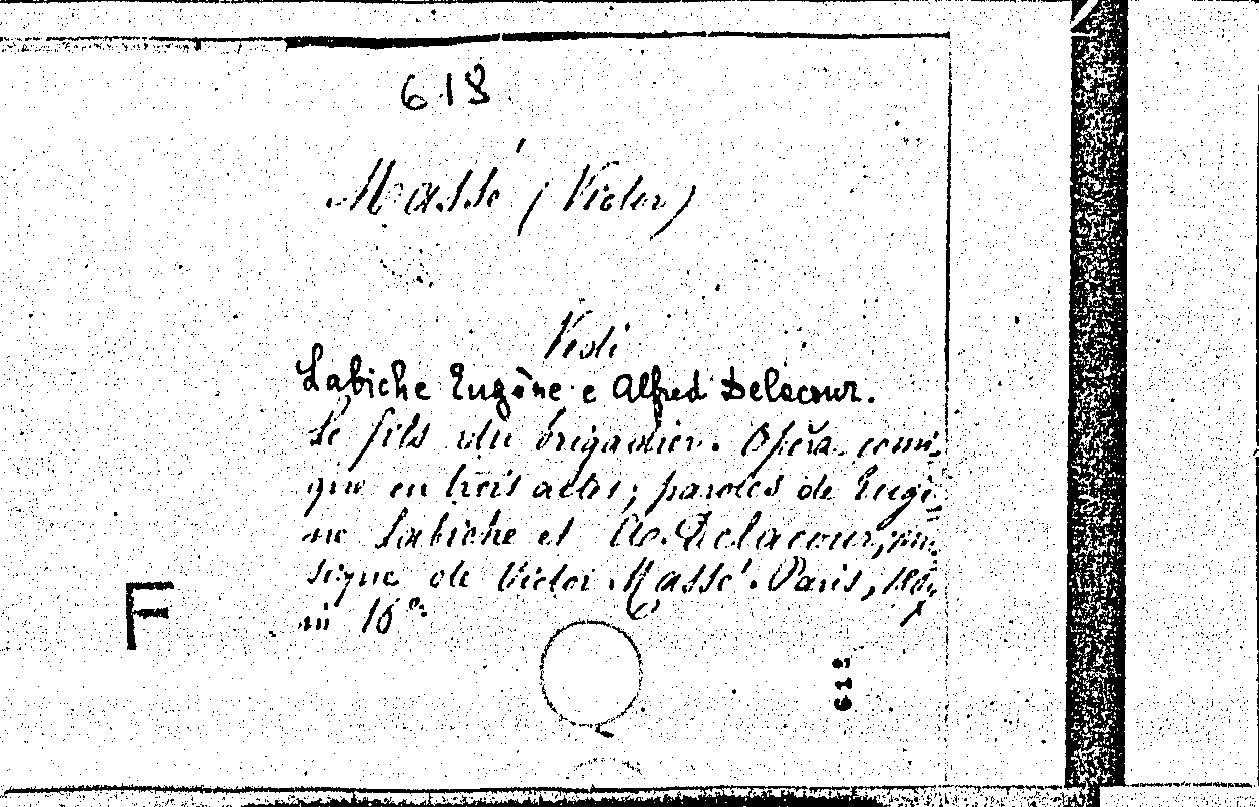 618
Massé (Victor)
Vedi
Labiche Eugène e Alfred Delacour.
Le fils du brigadier. Opéra-comi-
que en trois actes; paroles de Eugè-
ne Labiche et A. Delacour, mu-
sique de Victor Massé. Paris,
in 16º
F
618